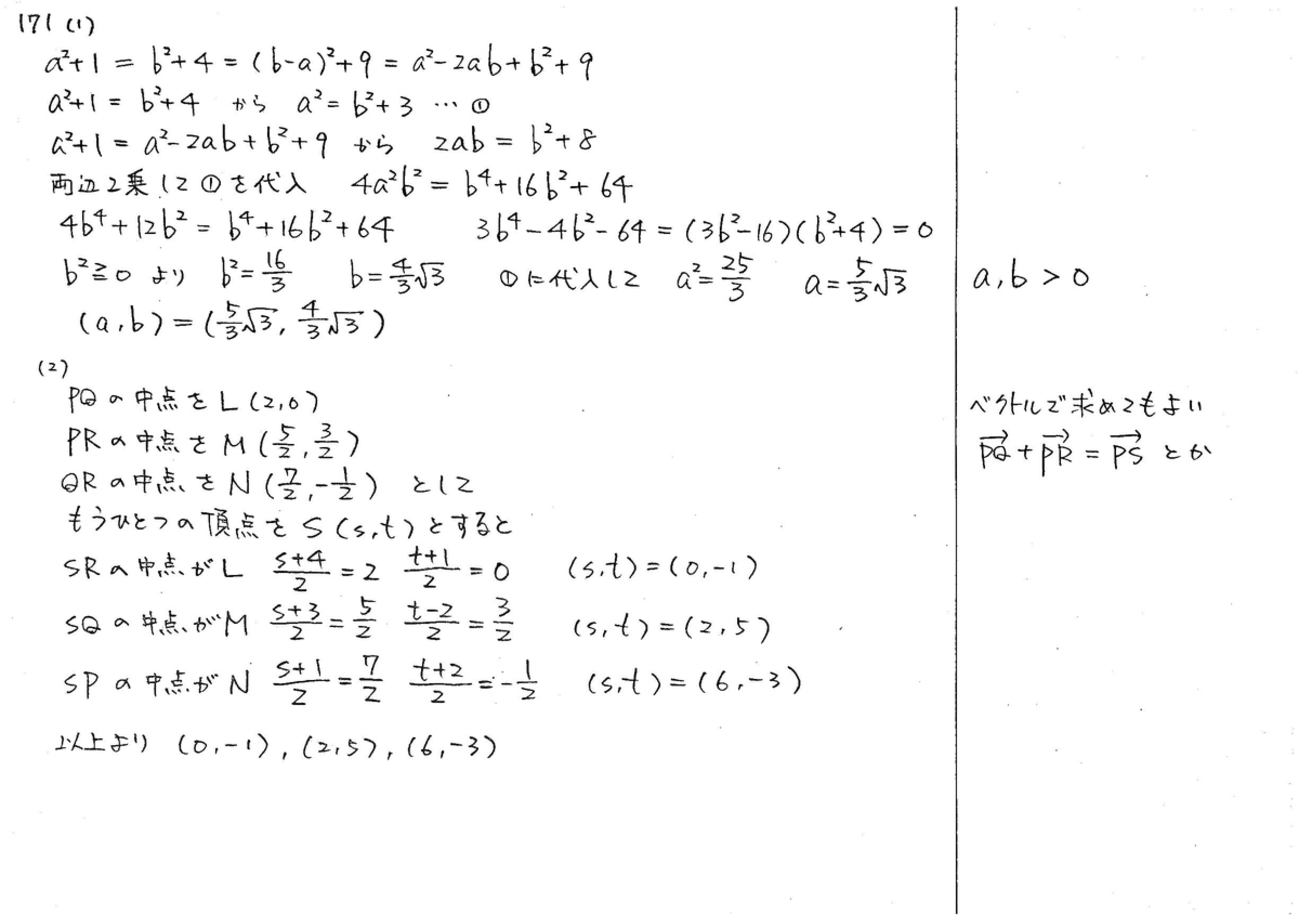 171 (1)
a²+1 = b²+4 = (b-a)²+9 = a²-2ab+b²+9
a²+1 = b²+4 から a² = b²+3 … ①
a²+1 = a²-2ab+b²+9 から 2ab = b²+8
両辺2乗して①を代入 4a²b² = b⁴+16b²+64
4b⁴+12b² = b⁴+16b²+64 3b⁴-4b²-64 = (3b²-16)(b²+4) = 0
b²≧0 より b²=16/3 b=4/3√3 ①に代入して a²=25/3 a=5/3√3
a,b > 0
(a,b) = (5/3√3, 4/3√3)
(2)
PQの中点をL(2,0)
PRの中点をM(5/2, 3/2)
QRの中点をN(7/2, -1/2) として
もうひとつの頂点をS(s,t)とすると
SRの中点がL (s+4)/2 = 2 (t+1)/2 = 0 (s,t) = (0,-1)
SQの中点がM (s+3)/2 = 5/2 (t-2)/2 = 3/2 (s,t) = (2,5)
SPの中点がN (s+1)/2 = 7/2 (t+2)/2 = -1/2 (s,t) = (6,-3)
以上より (0,-1), (2,5), (6,-3)
ベクトルで求めてもよい
→PQ + →PR = →PS とか